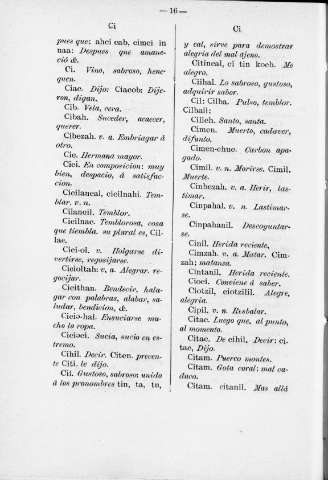 — 16 —
Ci
pues que: ahci oab, cimci in
naa: Despues que amane-
ció &.
Ci. Vino, sabroso, hene-
quen.
Ciac. Dijo: Ciacob: Dije-
ron, digan.
Cib. Vela, cera.
Cibah. Suceder, acaecer,
querer.
Cibezah. v. a. Embriagar á
otro.
Cic. Hermana mayor.
Cici. En composicion: muy
bien, despacio, á satisfac-
cion.
Cicilancal, cicilnahi. Tem-
blar. v. n.
Cilancil. Temblor.
Cicilnac. Temblorosa, cosa
que tiembla. su plural es, Cil-
lac.
Cici-ol. v. Holgarse di-
vertirse, regosijarse.
Cicioltah: v. a. Alegrar. re-
gocijar.
Cicithan. Bendecir, hala-
gar con palabras, alabar, sa-
ludar, bendicion, &.
Ciciɔ-hal. Ensuciarse mu-
cho la ropa.
Ciciɔci. Sucia, sucio en es-
tremo.
Cihil. Decir. Citen. precen-
te Citi. le dijo.
Cii. Gustoso, sabroso: unida
á los pronombres tin, ta, tu,
Ci
y cat, sirve para demostrar
alegria del mal ajeno.
Citincal, ci tin koch. Me
alegro.
Ciihal. Lo sabroso, gustoso,
adquirir sabor.
Cil: Cilba. Pulso, temblor.
Cilbail:
Cilich. Santo, santa.
Cimen. Muerto, cadaver,
difunto.
Cimen-chuc. Carbon apa-
gado.
Cimil. v. n. Morirse. Cimil.
Muerte.
Cinbezah. v. a. Herir, las-
timar.
Cinpahal. v. n. Lastimar-
se.
Cinpahanil. Descoyuntar-
se.
Cinil. Herida reciente,
Cimzah. v. a. Matar. Cim-
zah; matanza.
Cintanil. Herida reciente.
Cioci. Conviene á saber.
Ciotzil, ciotzilil. Alegre,
alegria.
Cipil. v. n. Resbalar.
Citac. Luego que, al punto,
al momento.
Citac. De cihil, Decir: ci-
tac, Dijo.
Citam. Puerco montes.
Citam. Gota coral: mal ca-
duco.
Citam. citanil. Mas allá